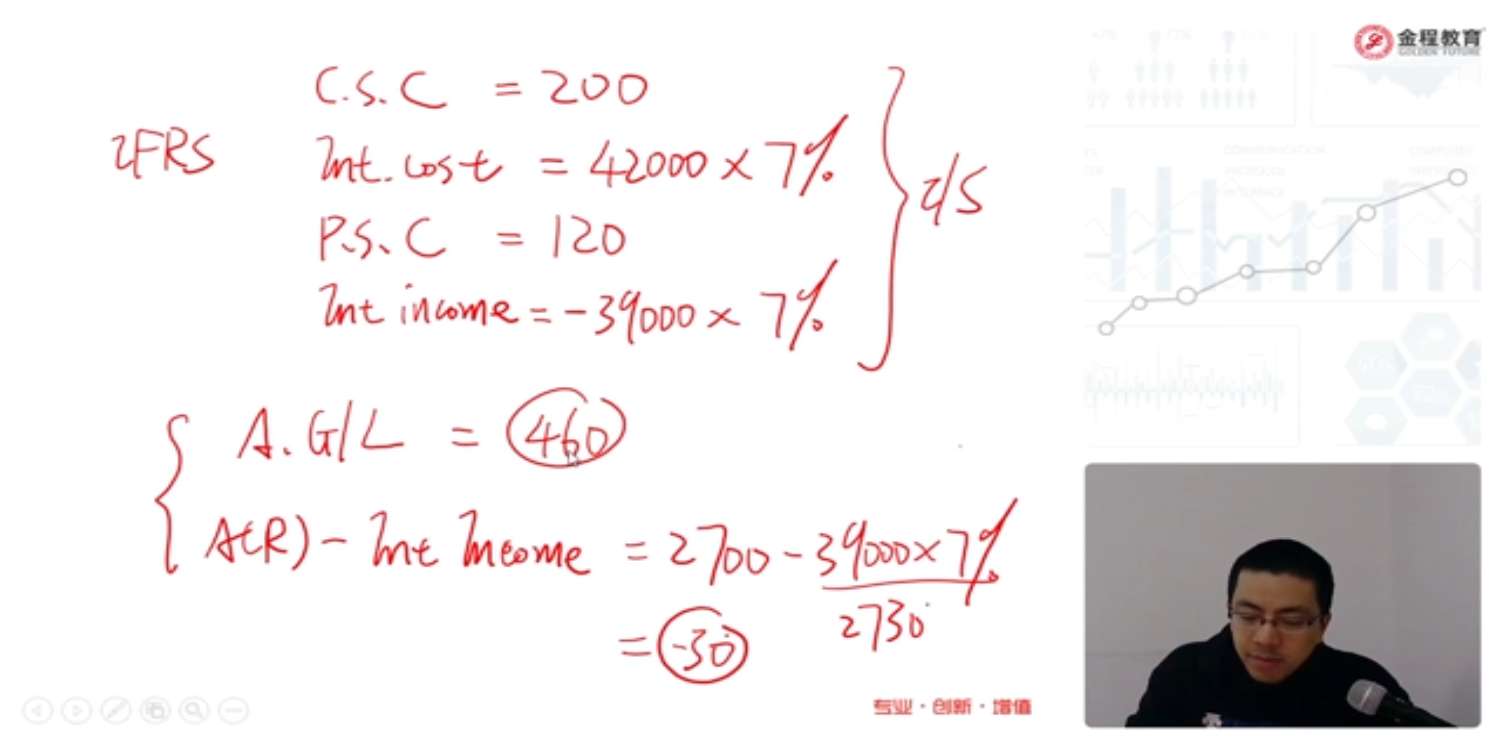 金程教育
GOLDEN FUTURE
IFRS
C.S.C = 200
Int. cost = 42000 × 7%
P.S.C = 120
Int income = -39000 × 7%
I/S
A. G/L = 460
A(R) - Int Income = 2700 - 39000 × 7%
2730
= -30
专业·创新·增值